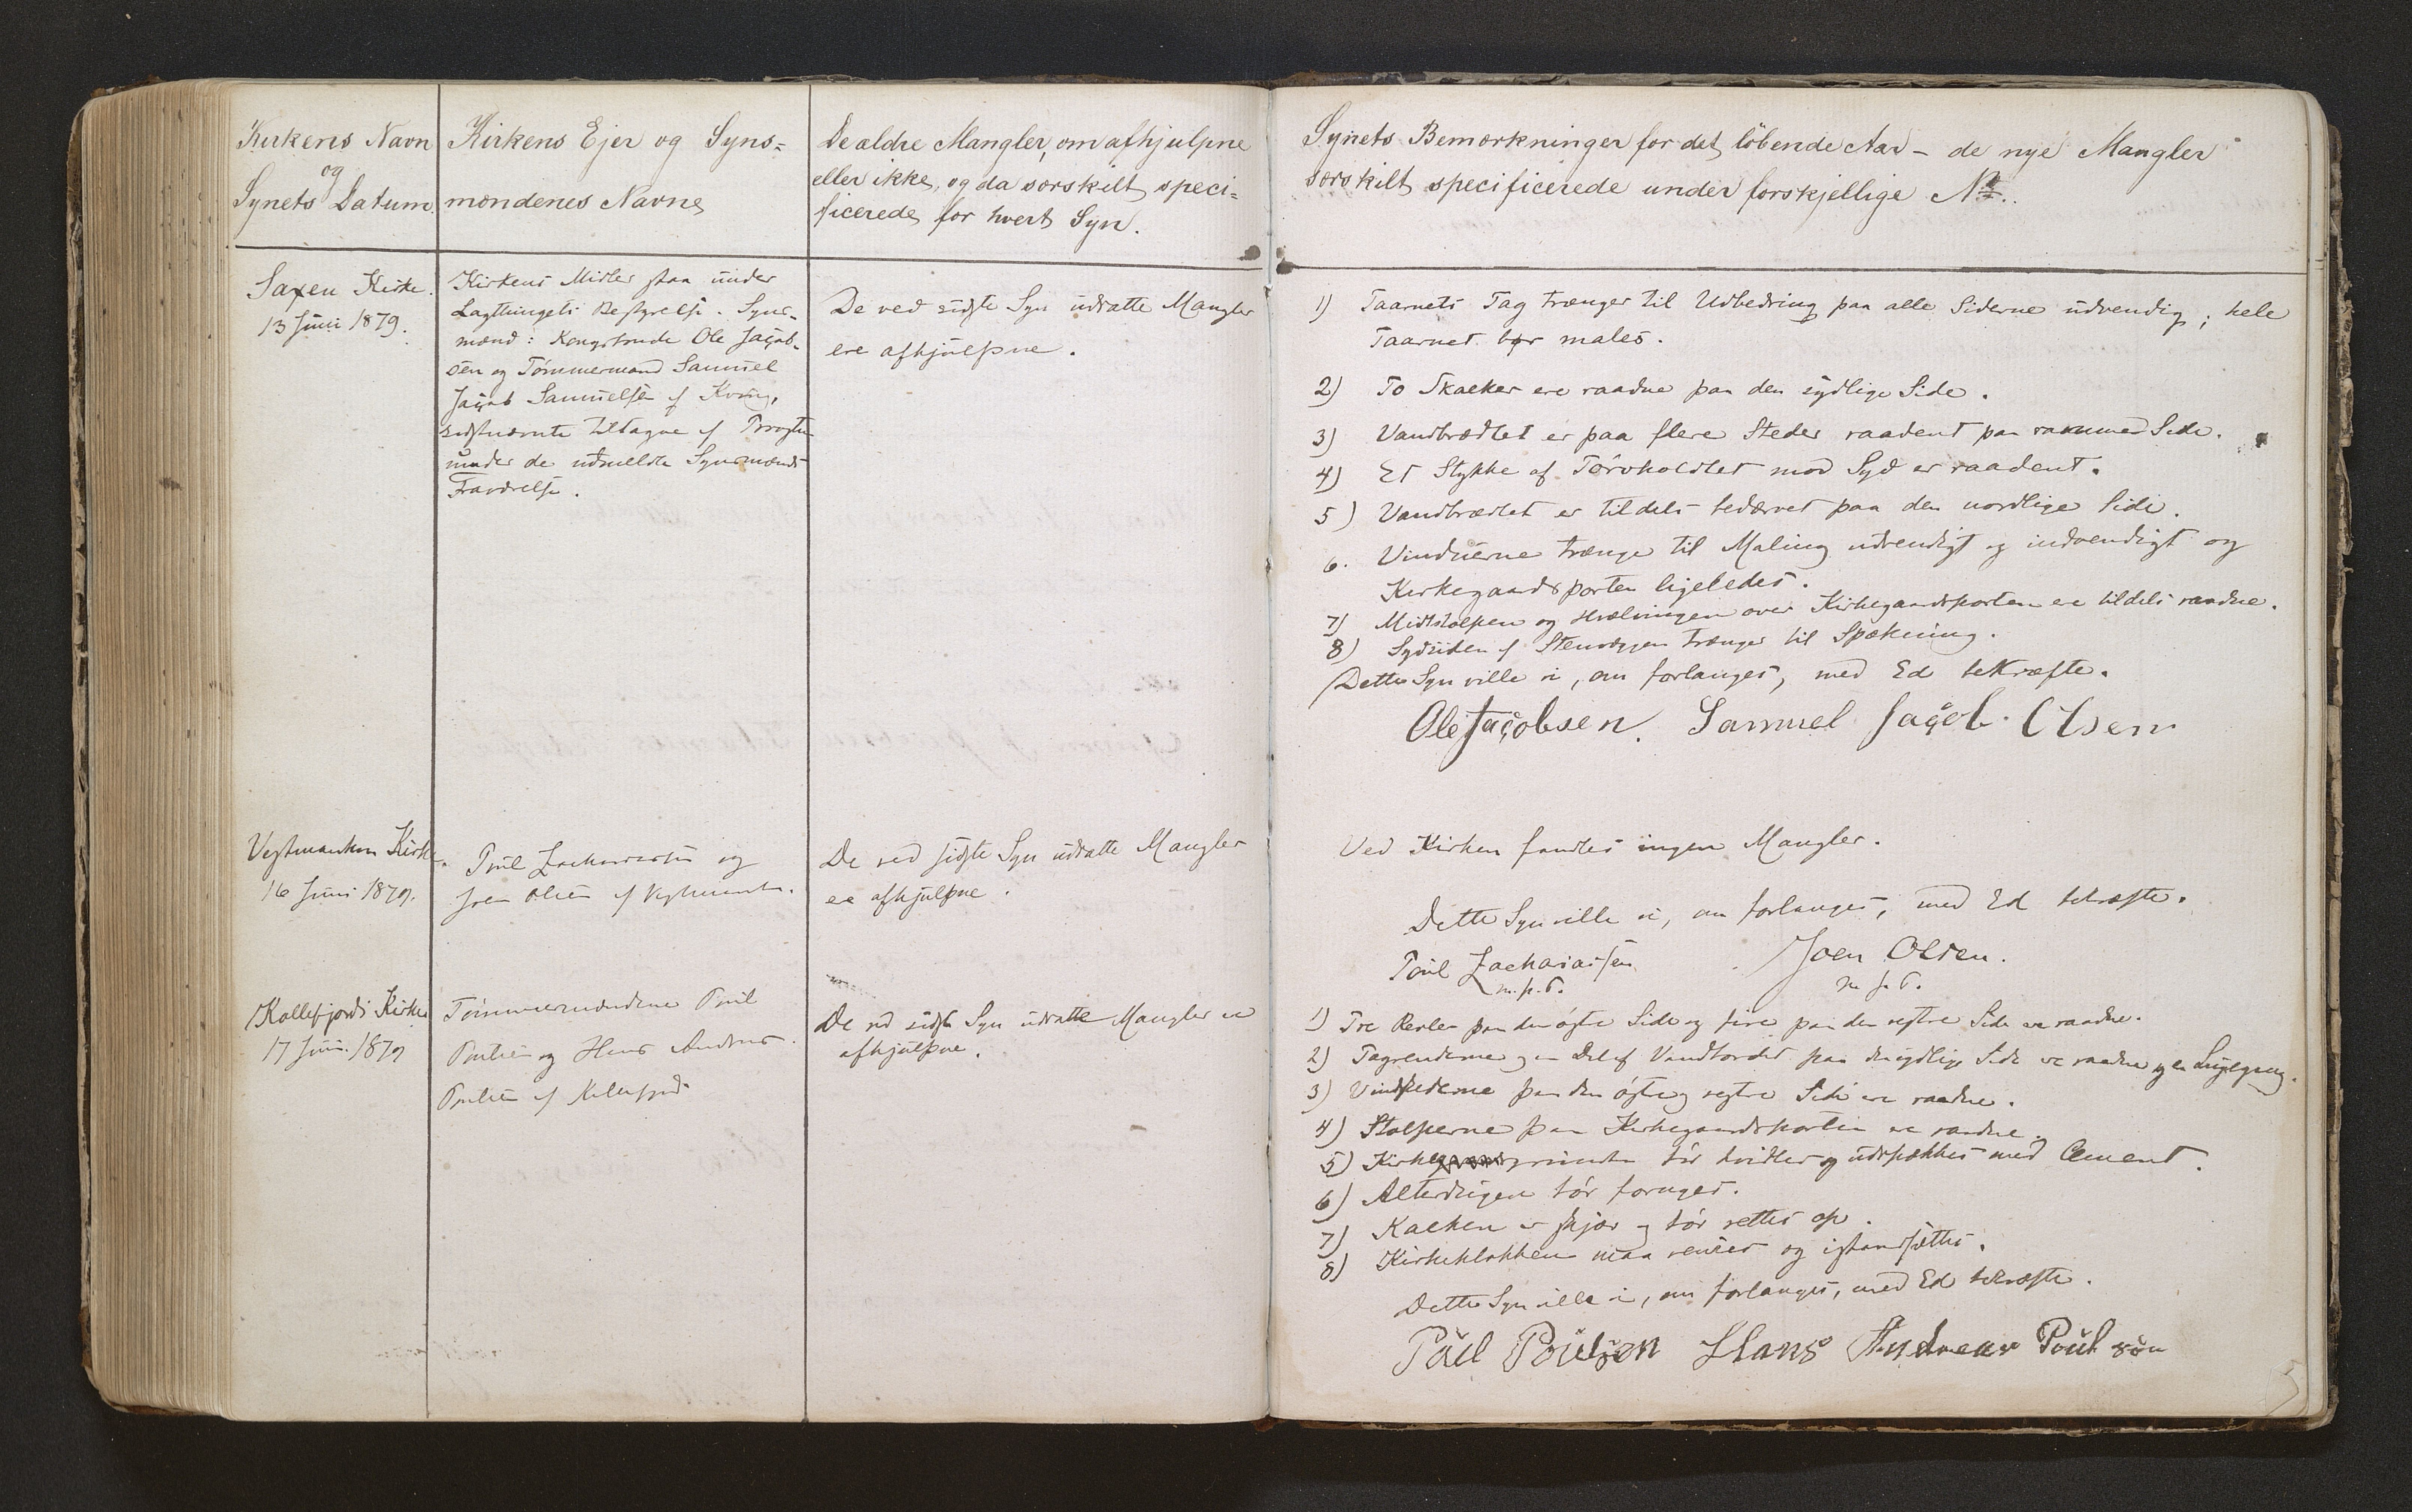 Kirkens Navn
og
Synets Datum
Kirkens Ejer og Syns-
mændenes Navne
De ældre Mangler, om afhjulpne
eller ikke, og da særskilt speci-
ficerede for hvert Syn.
Synets Bemærkninger for det löbende Aar – de nye Mangler
særskilt specificerede under forskjellige No.
Saxen Kirke.
13 Juni 1879.
Kirkens Midler staa under
Lagthingets Bestyrelse. Syns-
mænd: Kongsbonde Ole Jacob-
sen og Tömmermand Samuel
Jacob Samuelsen af Kvivig,
sidstnævnte tiltagne af Provsten
under de udmeldte Synsmænds
Fraværelse.
De ved sidste Syn udsatte Mangler
ere afhjulpne.
1) Taarnets Tag trænger til Udbedring paa alle Siderne udvendig; hele
Taarnet bør males.
2) To Skalker ere raadne paa den sydlige Side.
3) Vandbrædtet er paa flere Steder raadent paa samme Side.
4) Et Stykke af Tørvholdtet mod Syd er raadent.
5) Vandbrædtet er tildels bedærvet paa den nordlige Side.
6. Vinduerne trænge til Maling udvendigt og indvendigt og
Kirkegaardsporten ligeledes.
7) Midtstolpen og Hvælvingen over Kirkegaardsporten ere tildels raadne.
8) Sydsiden af Stenvæggen trænger til Spækning.
Dette Syn ville vi, om forlanges, med Ed bekræfte.
Ole Jacobsen. Samuel Jacob Olsen
Vestmanhavn Kirke.
16 Juni 1879.
Poul Zachariassen og
Joen Olsen af Vestmanhavn.
De ved sidste Syn udsatte Mangler
ere afhjulpne.
Ved Kirken fandtes ingen Mangler.
Dette Syn ville vi, om forlanges, med Ed bekræfte.
Poul Zachariassen Joen Olsen.
m. p. P. m. p. P.
Kollefjords Kirke
17 Juni 1879
Tömmermændene Poul
Poulsen og Hans Andreas
Poulsen af Kollefjord.
De ved sidste Syn udsatte Mangler ere
afhjulpne.
1) Tre Revler paa den østre Side og fire paa den vestre Side ere raadne.
2) Tagrenderne og en Del af Vandbordet paa den sydlige Side ere raadne og en
3) Vindskederne paa den østre og vestre Side ere raadne.
4) Stolperne paa Kirkegaardsporten ere raadne.
5) bör hvidtes og udspækkes med Cement.
6) Alterdugen bör fornyes.
7) Kalken er skjæv og bör rettes op.
8) Kirkeklokken maa renses og istandsættes.
Dette Syn ville vi, om forlanges, med Ed bekræfte.
Poul Poulsen Hans Andreas Poulsen